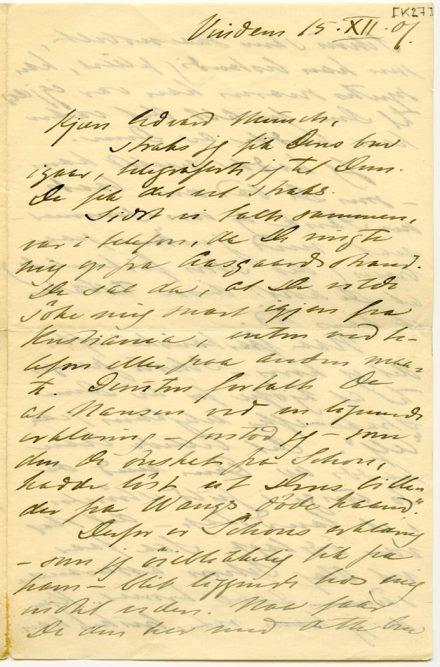 [K27]
Vinderen 15. XII. 07.
Kjære Edvard Munch,
Straks jeg fik Deres brev
igaar, telegraferte jeg til Dem.
De fik det vel straks.
Sidst vi talte sammen,
var i telefon, da De ringte
mig op fra Aasgaardstrand.
De sa' da, at De vilde
søke mig snart igjen fra
Kristiania, enten ved te-
lefon eller paa anden maa-
te. Desuten fortalte De
at Nansen ved en lignende
erklæring – forstod jeg – som
den De ønsket fra Schou,
hadde løst ut Deres billed-
der fra Wangs "døde haand".
Derfor er Schous erklæring
– som jeg øieblikkelig fik fra
ham – blit liggende hos mig
indtil videre. Nu faar
De den her med